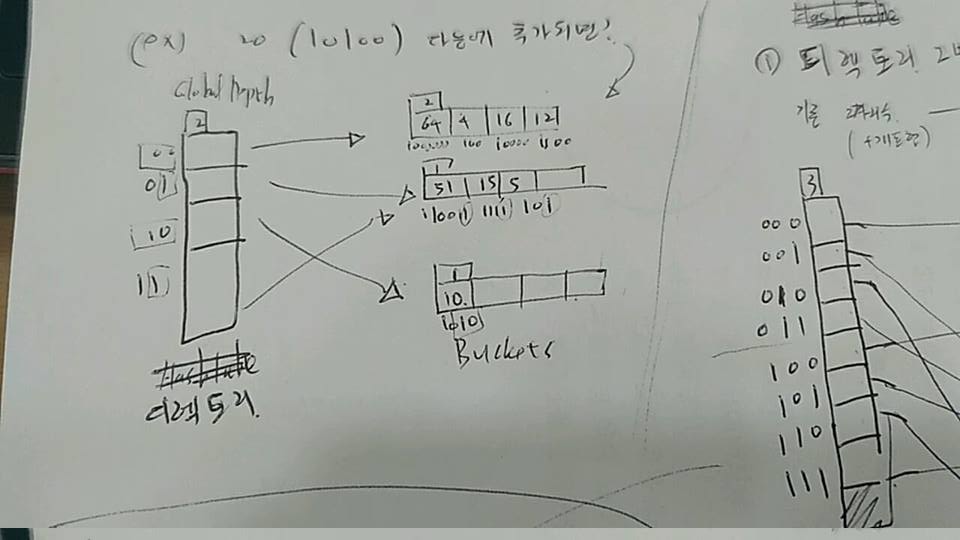 (ex) 20 (10100) 다음에 추가되면?
Global Depth
2
00
01
10
11
Hash Table
디렉토리.
2
64 4 16 12
1000000 100 10000 1100
1
51 15 5
110011 1111 101
1
10.
1010
Buckets
Hash Table
① 디렉토리
기존
3
000
001
010
011
100
101
110
111